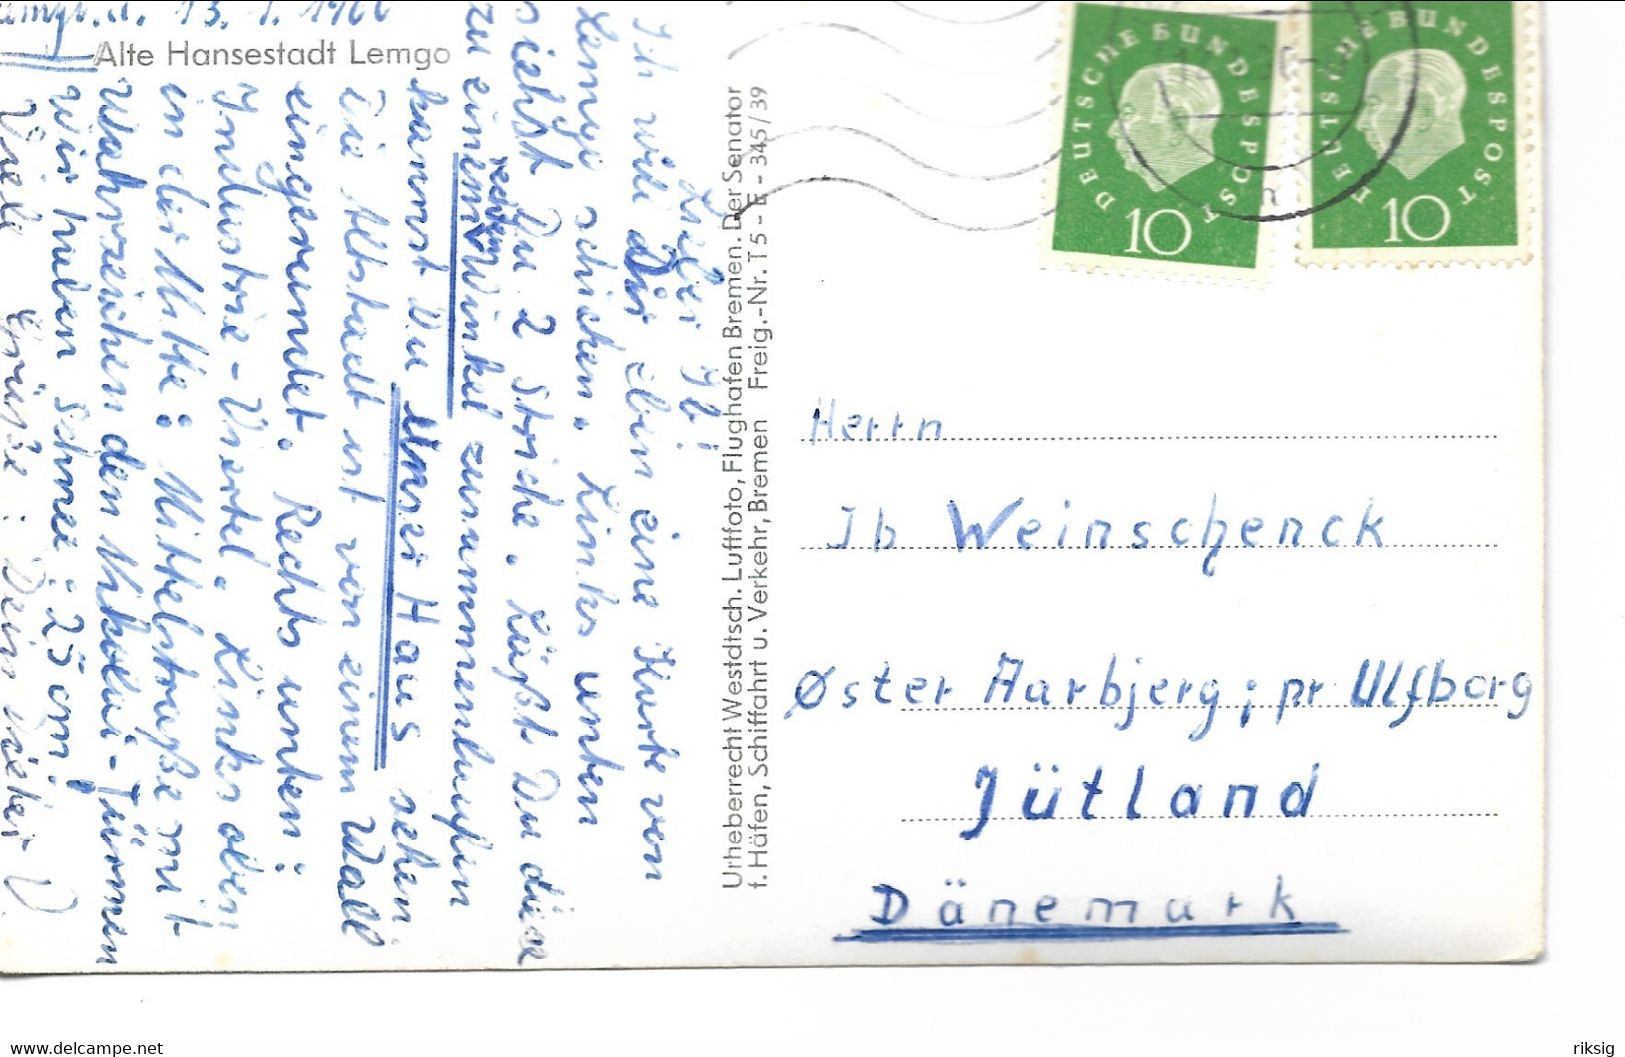 Lemgo, d. 13. 1. 1960
Alte Hansestadt Lemgo
Lieber Ib!
Ich will Dir eben eine Karte von
Lemgo schicken. Links unten
siehst Du 2 Striche. Läßt Du diese
zu einem rechten Winkel zusammenlaufen
kannst Du unser Haus sehen
Die Altstadt ist von einem Wall
eingerundet. Rechts unten:
Industrie-Viertel. Links oben
in der Mitte: Mittelstraße mit
Wahrzeichen den Nikolai-Türmen
Wir haben Schnee: 25 cm!
Viele Grüße: Dein Dieter V.
Urheberrecht Westdtsch. Luftfoto, Flughafen Bremen. Der Senator
f. Häfen, Schiffahrt u. Verkehr, Bremen Freig.-Nr. T 5 - E - 345/39
DEUTSCHE BUNDESPOST
10
DEUTSCHE BUNDESPOST
10
Herrn
Ib Weinschenck
Øster Aarbjerg; pr Ulfborg
Jütland
Dänemark
www.delcampe.net
riksig